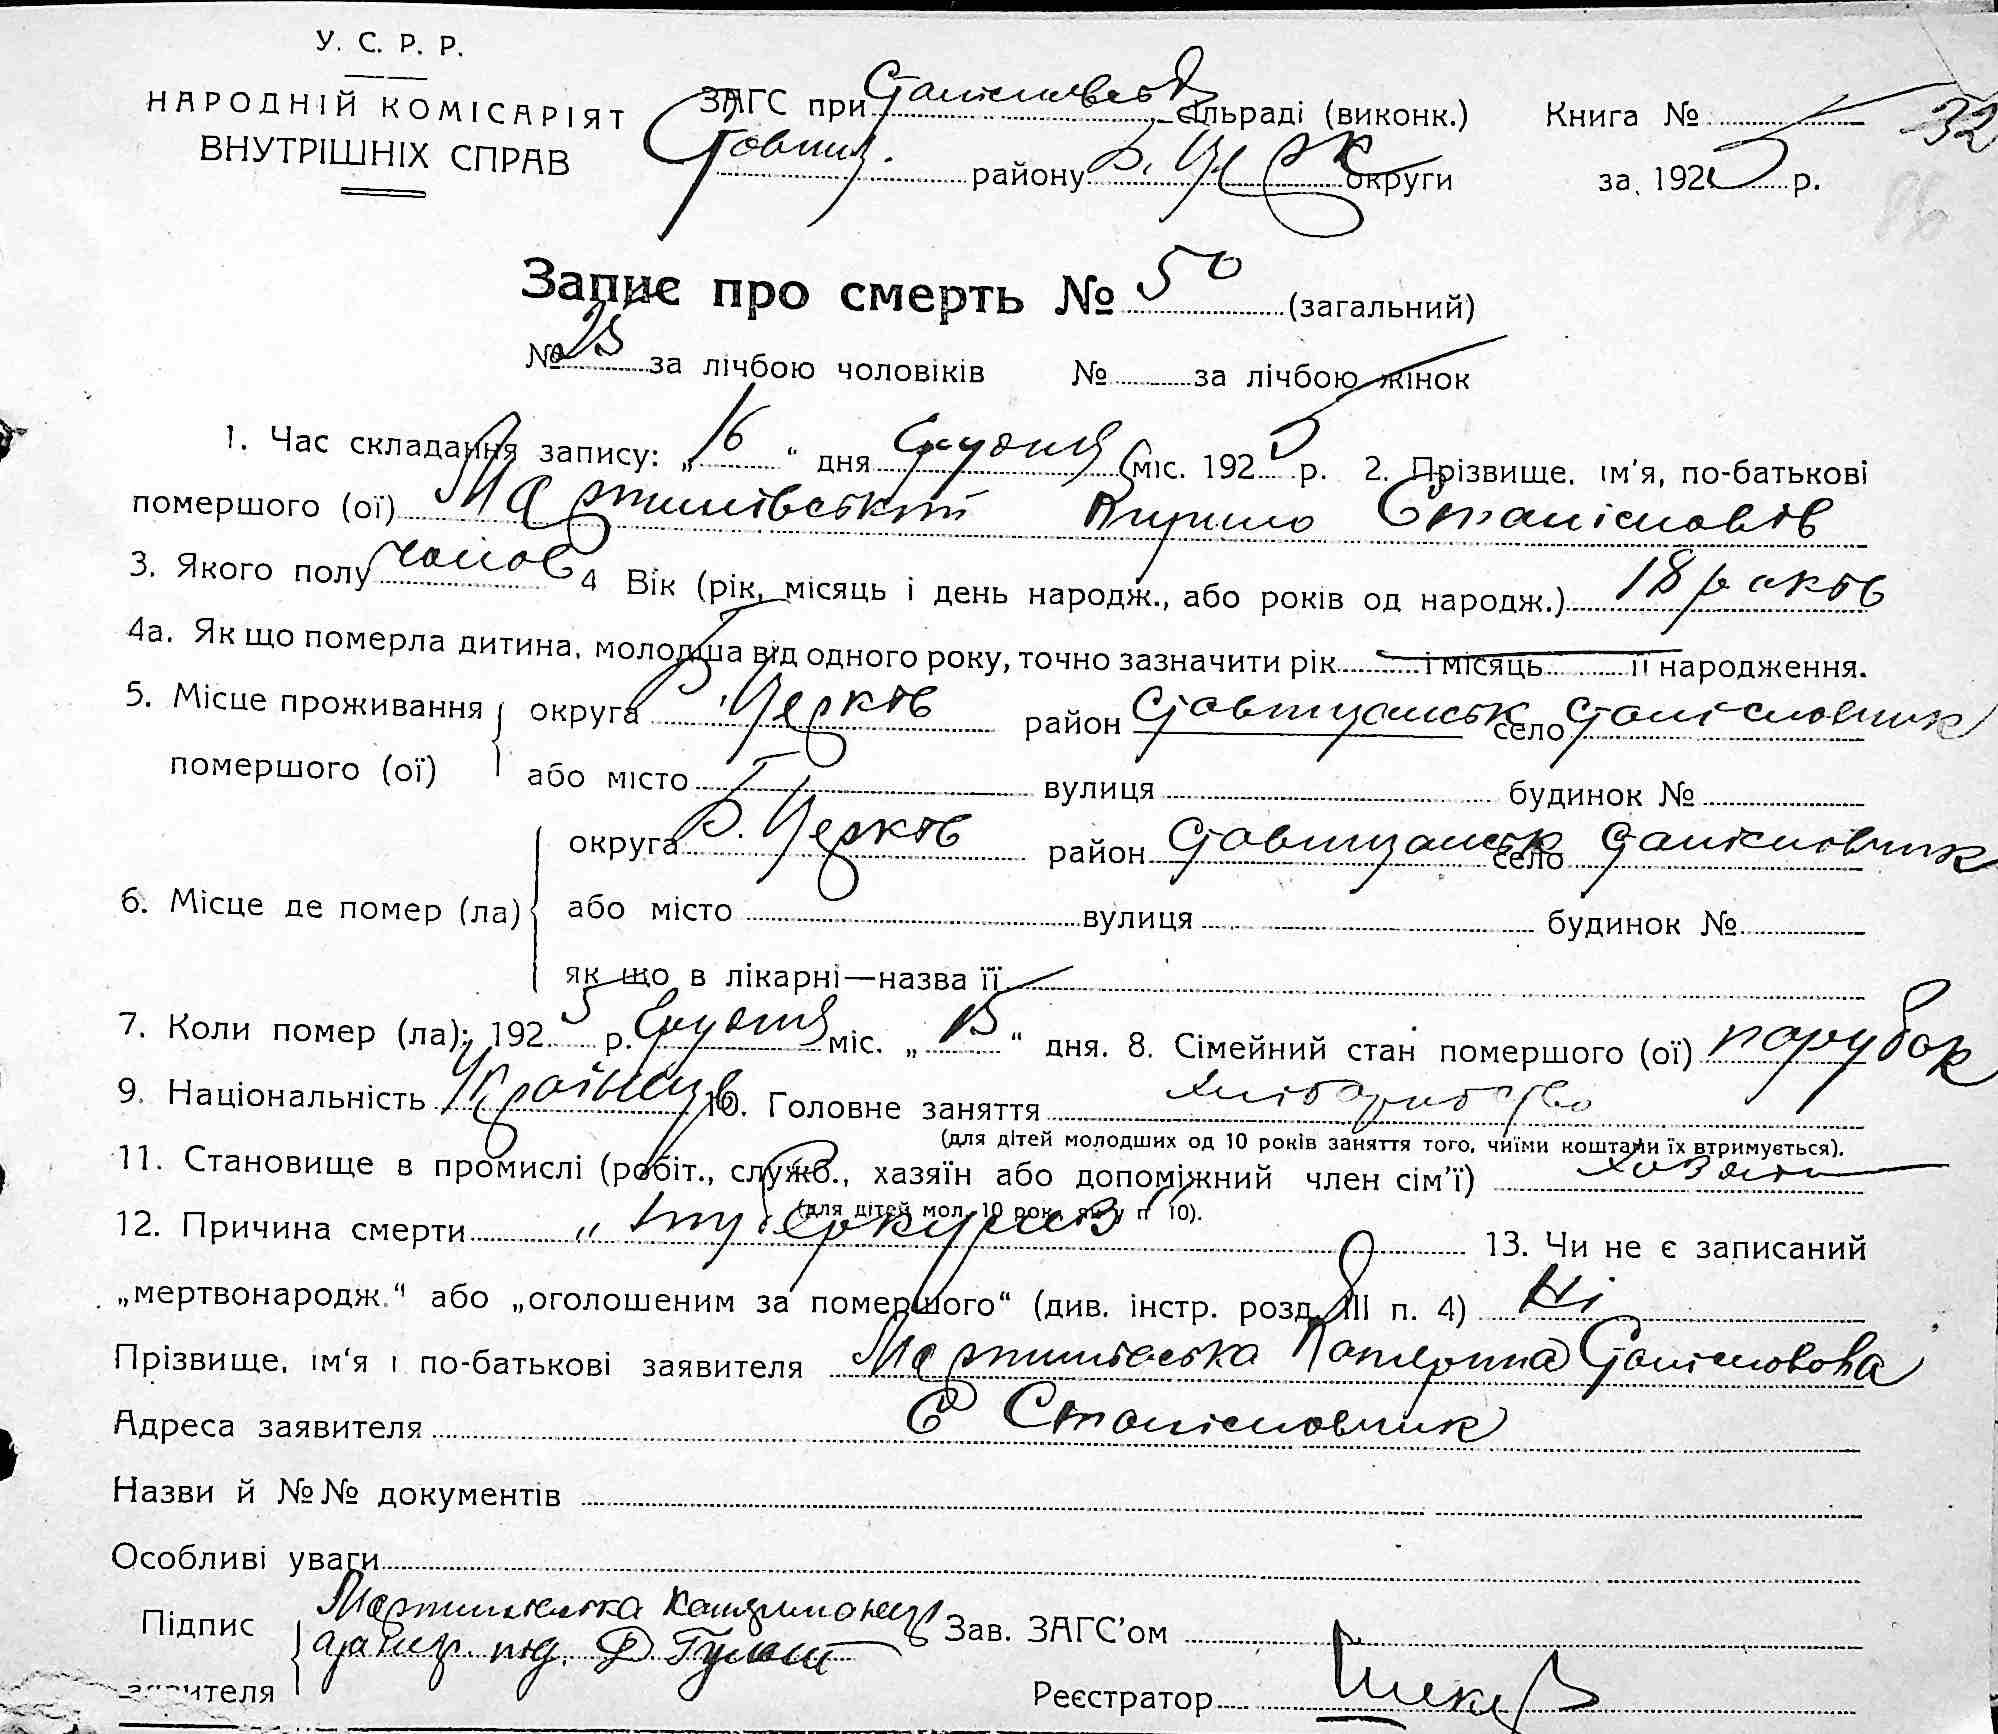 У. С. Р. Р.
НАРОДНІЙ КОМІСАРІЯТ
ВНУТРІШНІХ СПРАВ
ЗАГС при Станіславськ сільраді (виконк.) Книга № 32
Ставищ. району Б. Церк округи за 1925 р.
86
Запис про смерть № 50 (загальний)
№ 25 за лічбою чоловіків № за лічбою жінок
1. Час складання запису: „16“ дня Грудня міс. 1925 р. 2. Прізвище, ім'я, по-батькові
помершого (ої) Мартинівський Кирило Станіславів
3. Якого полу чолов 4 Вік (рік, місяць і день народж., або років од народж.) 18 років
4а. Як що померла дитина, молодша від одного року, точно зазначити рік і місяць її народження.
5. Місце проживання помершого (ої) округа Б. Церків район Ставищанськ село Станіславчик
або місто вулиця будинок №
6. Місце де помер (ла) округа Б. Церків район Ставищанськ село Станіславчик
або місто вулиця будинок №
як що в лікарні—назва її
7. Коли помер (ла); 1925 р. Грудня міс. „15“ дня. 8. Сімейний стан помершого (ої) парубок
9. Національність Країнец 10. Головне заняття хліборобство
(для дітей молодших од 10 років заняття того, чиїми коштами їх втримується).
11. Становище в промислі (робіт., служб., хазяїн або допоміжний член сім'ї) хозяїн
(для дітей мол. 10 рок. яку п 10).
12. Причина смерти „туберкульоз“ 13. Чи не є записаний
„мертвонародж.“ або „оголошеним за помершого“ (див. інстр. розд. III п. 4) Ні
Прізвище, ім'я і по-батькові заявителя Мартинівська Катерина Станіславова
Адреса заявителя С Станіславчик
Назви й №№ документів
Особливі уваги
Підпис заявителя Мартинівська
Зав. ЗАГС'ом
Реєстратор